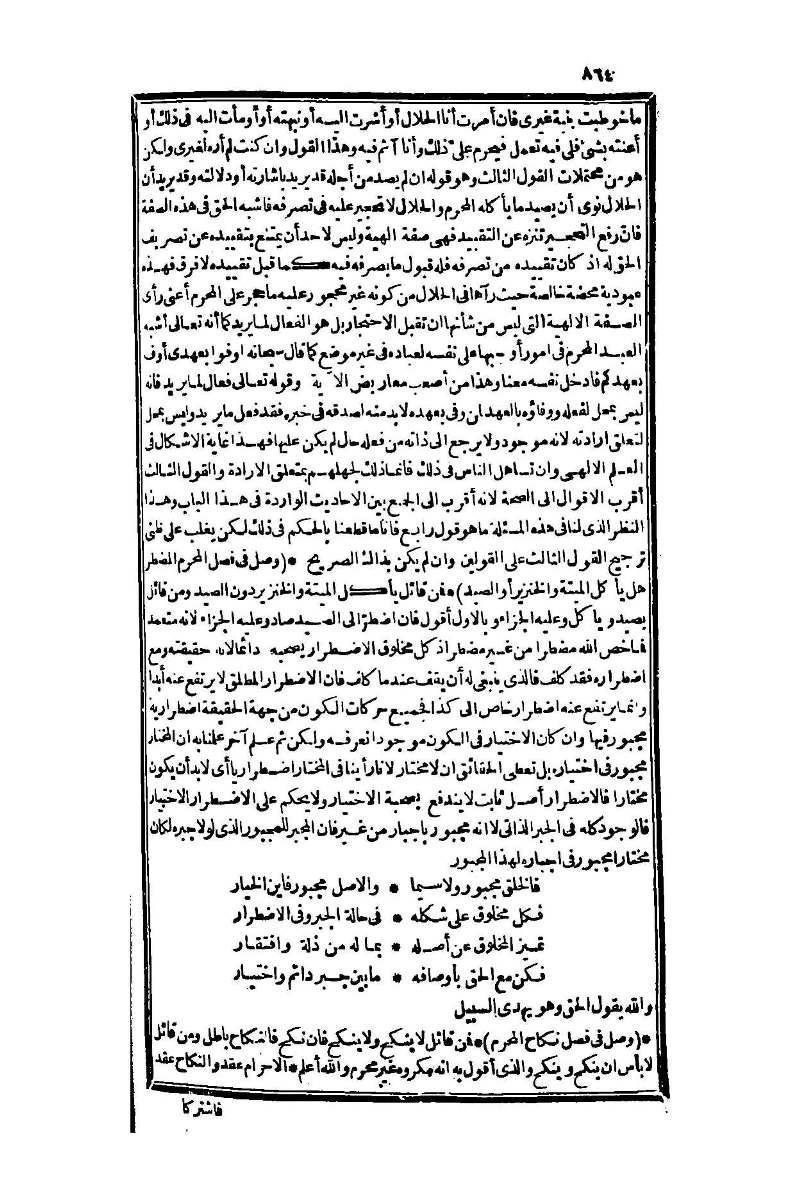 ٨٦٤
ما شوطبت بنية غيرى فان أمرت أنا الحلال أو أشرت اليه أو نبهته أو أومأت اليه فى ذلك أو
أعنته بشئ فلى فيه تعمل فيحرم على ذلك وأنا آثم فيه وهذا القول وان كنت لم أره لغيرى ولكن
هو من محتملات القول الثالث وهو قوله ان لم يصد من أجله قد يريد باشارته أو دلالته وقد يريد أن
الحلال نوى أن يصيد ما يأكله المحرم والحلال لا تحجير عليه فى تصرفه فاشبه الحق فى هذه الصفة
فان رفع التحجير تنزه عن التقييد فهى صفة الهية وليس لاحد أن يمتنع بتقييده عن تصريف
الحق له اذ كان تقييده من تصرفه فله قبول ما يصرفه فيه كما قبل تقييده لا فرق فهذه
عبودية محضة خالصة حيث رآها فى الحلال من كونه غير محجور عليه ما حجر على المحرم أعنى رأى
الصفة الالهية التى ليس من شأنها ان تقبل الاحتجار بل هو الفعال لما يريد كما أنه تعالى أشبه
العبد المحرم فى امور أوجبها على نفسه لعباده فى غير موضع كما قال سبحانه اوفوا بعهدى أوف
بعهدكم فادخل نفسه معنا وهذا من أصعب معاريض الآية وقوله تعالى فعال لما يريد فانه
ليس بمحل لفعله ووفاؤه بالعهد ان وفى بعهده لابد منه لصدقه فى خبره فقد فعل ما يريد وليس بمحل
لتعلق ارادته لانه موجود ولا يرجع الى ذاته من فعله حال لم يكن عليها فهذا غاية الاشكال فى
العلم الالهى وان تساهل الناس فى ذلك فانما ذلك لجهلهم بمتعلق الارادة والقول الثالث
أقرب الاقوال الى الصحة لانه أقرب الى الجمع بين الاحاديث الواردة فى هذا الباب وهذا
النظر الذى لنا فى هذه المسئلة ما هو قول رابع فانا ما قطعنا بالحكم فى ذلك لكن يغلب على ظنى
ترجيح القول الثالث على القولين وان لم يكن بذالك الصريح * (وصل فى فصل المحرم المضطر
هل يأكل الميتة والخنزير أو الصيد) * فمن قائل يأكل الميتة والخنزير دون الصيد ومن قائل
يصيد ويأكل وعليه الجزاء وبالاول أقول فان اضطر الى الصيد صاد وعليه الجزاء لانه متعمد
فما خص الله مضطرا من غير مضطر اذ كل مخلوق الاضطرار يصحبه دائما لانه حقيقته ومع
اضطراره فقد كلف فالذى ينبغى له أن يقف عندما كلف فان الاضطرار المطلق لا يرتفع عنه أبدا
وانما يرتفع عنه اضطرار خاص الى كذا فجميع حركات الكون من جهة الحقيقة اضطرارية
مجبور فيها وان كان الاختيار فى الكون موجودا نعرفه ولكن ثم علم آخر علمنا به ان المختار
مجبور فى اختياره بل تعطى الحقائق ان لا مختار لانا رأينا فى المختار اضطراريا أى لا بد أن يكون
مختارا فالاضطرار أصل ثابت لا يندفع بصحبة الاختيار ولا يحكم على الاضطرار الاختيار
فالوجود كله فى الجبر الذاتى لا انه مجبور باجبار من غير فان المجبر للمجبور الذى لولا جبره لكان
مختارا مجبور فى اجباره لهذا المجبور
فالخلق مجبور ولا سيما * والاصل مجبور فاين الخيار
فكل مخلوق على شكله * فى حالة الجبر وفى الاضطرار
تميز المخلوق عن أصله * بما له من ذلة وافتقار
فكن مع الحق بأوصافه * ما بين جبر دائم واختيار
والله يقول الحق وهو يهدى السبيل
* (وصل فى فصل نكاح المحرم) * فمن قائل لا ينكح ولا ينكح فان نكح فالنكاح باطل ومن قائل
لا بأس ان ينكح وينكح والذى أقول به انه مكروه غير محرم والله أعلم * الاحرام عقد والنكاح عقد
فاشتركا